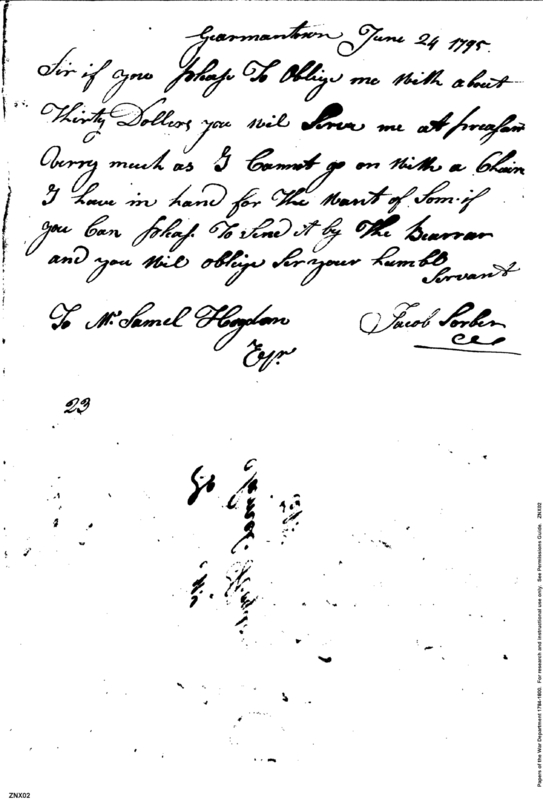 Gearmantown June 24 1795.
Sir if you pleas To Oblige me With about
Thirty Dollers you Wil Serve me at preasan
Verry much as I Cannot go on With a Chain
I have in hand for The Want of Som. if
you Can pleas. To Send it by The Bearrar
and you Wil obleige Ser your humbl
Servant
To Mr. Samel Hogdon Jacob Sorber
Esqr
23
ZNX02
Papers of the War Department 1784-1800. For research and instructional use only. See Permissions Guide. ZNX02